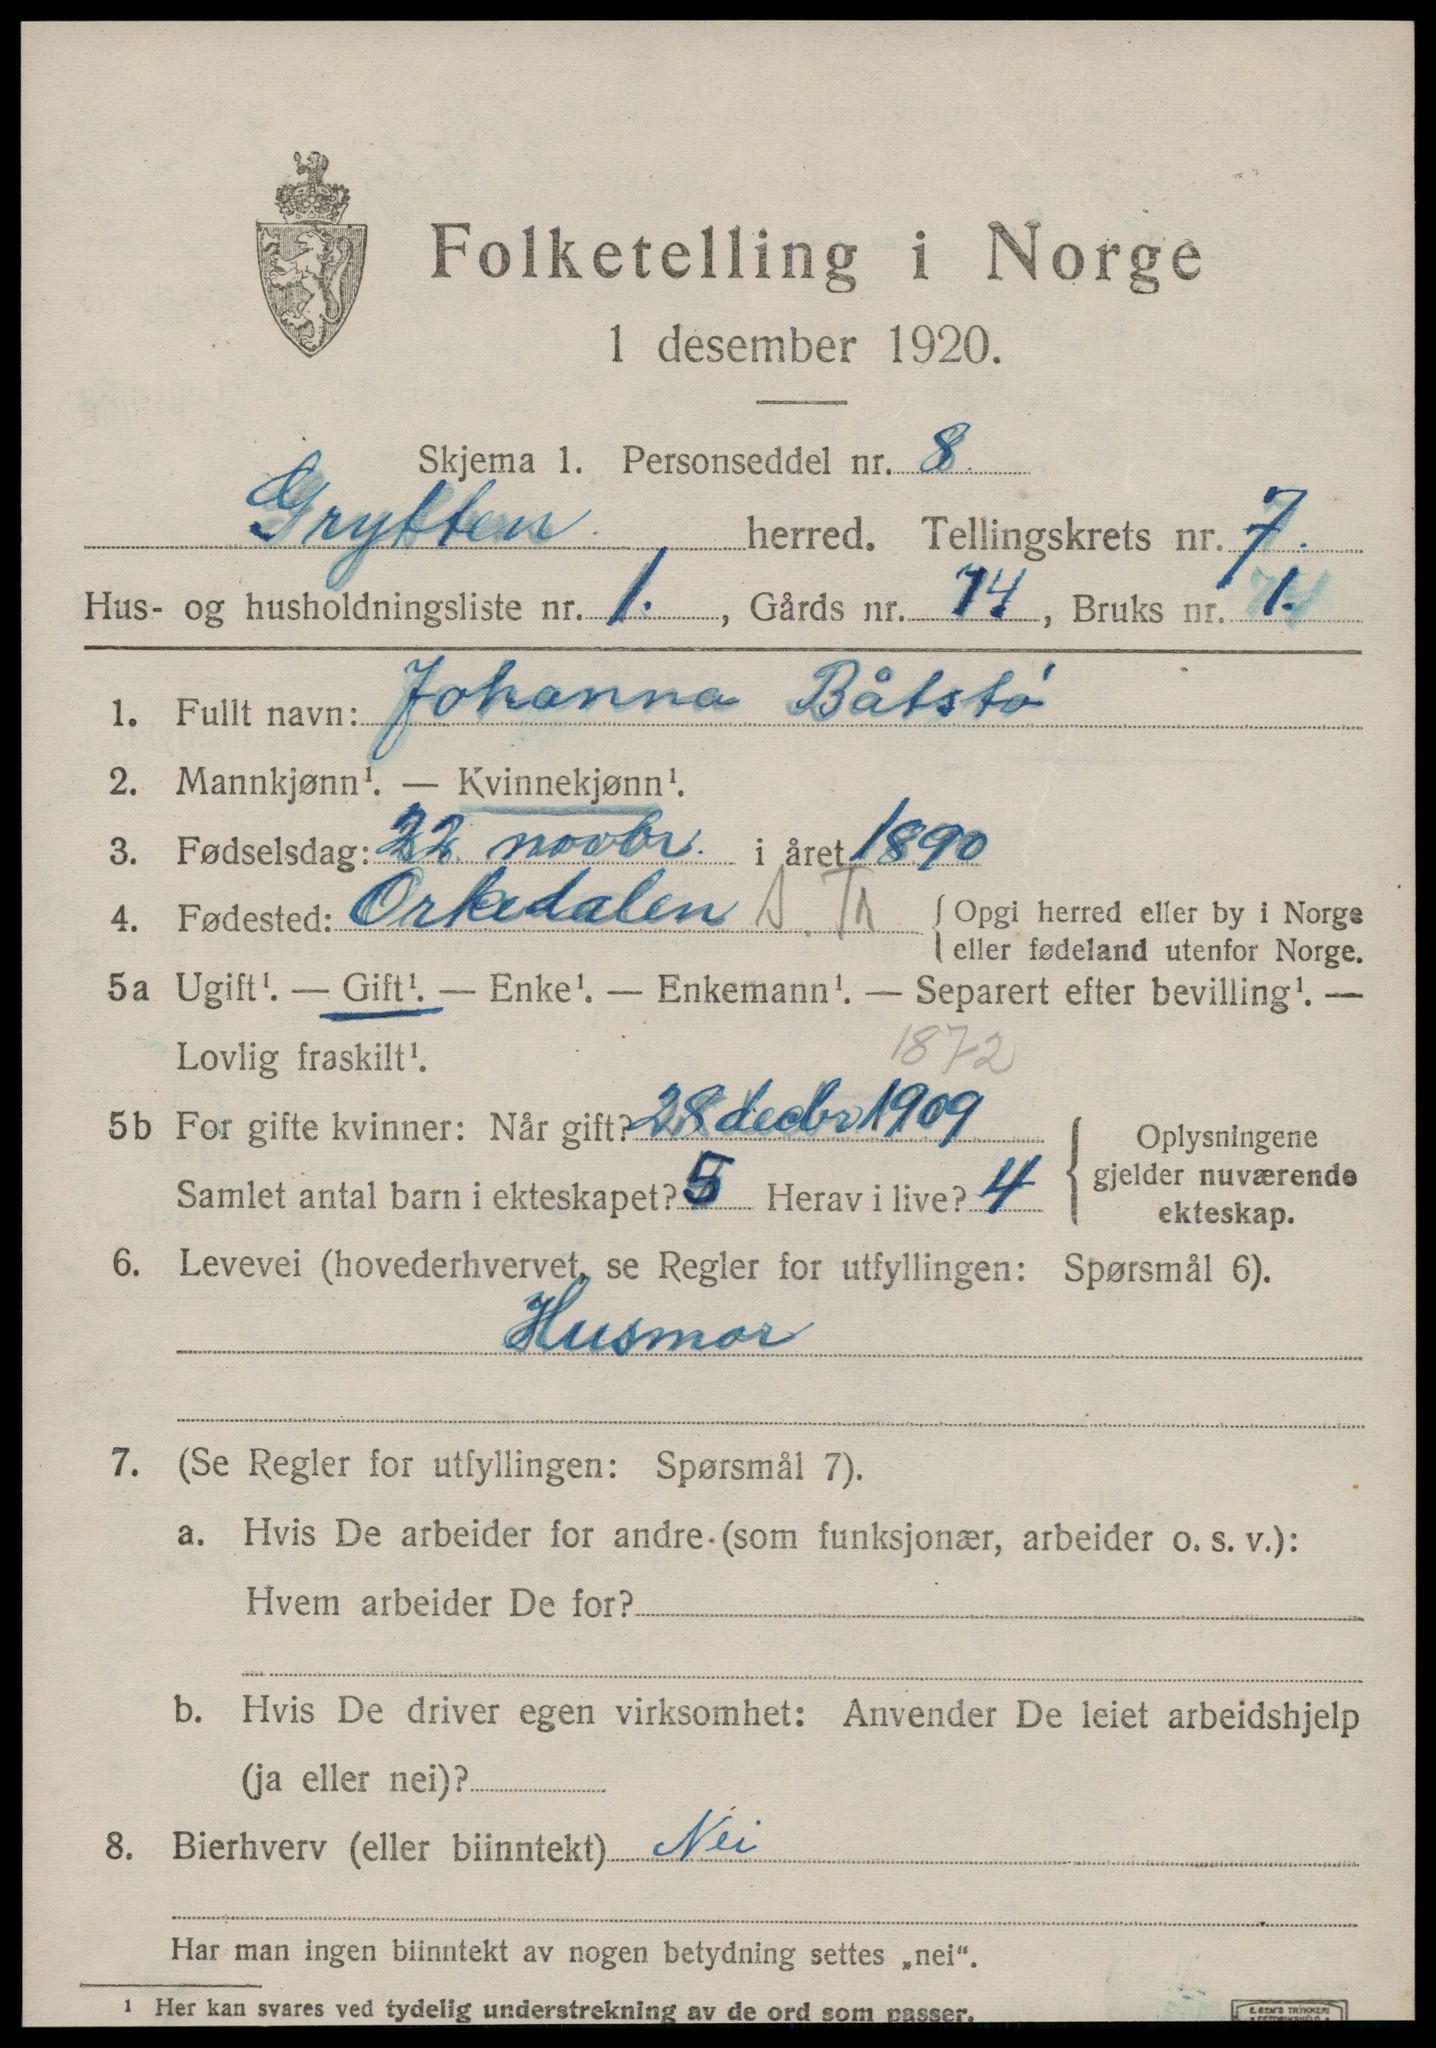 Folketelling i Norge
1 desember 1920.
Skjema 1. Personseddel nr. 8.
Grytten herred. Tellingskrets nr. 7.
Hus- og husholdningsliste nr. 1., Gårds nr. 74, Bruks nr. 1.
1. Fullt navn: Johanna Båtstø
2. Mannkjønn¹. — Kvinnekjønn¹.
3. Fødselsdag: 22 novbr. i året 1890
4. Fødested: Orkedalen S. Tr { Opgi herred eller by i Norge
eller fødeland utenfor Norge.
5a Ugift¹. — Gift¹. — Enke¹. — Enkemann¹. — Separert efter bevilling¹. —
Lovlig fraskilt¹. 1872
5b For gifte kvinner: Når gift? 28 decbr 1909
Samlet antal barn i ekteskapet? 5 Herav i live? 4
Oplysningene
gjelder nuværende
ekteskap.
6. Levevei (hovederhvervet, se Regler for utfyllingen: Spørsmål 6).
Husmor
7. (Se Regler for utfyllingen: Spørsmål 7).
a. Hvis De arbeider for andre (som funksjonær, arbeider o. s. v.):
Hvem arbeider De for?
b. Hvis De driver egen virksomhet: Anvender De leiet arbeidshjelp
(ja eller nei)?
8. Bierhverv (eller biinntekt) Nei
Har man ingen biinntekt av nogen betydning settes „nei“.
¹ Her kan svares ved tydelig understrekning av de ord som passer.